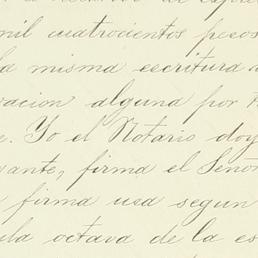 mil cuatrocientos pesos
la misma escritura
racion alguna por
Yo el Notario doy
firma el Señor
firma usa segun
octava de la es